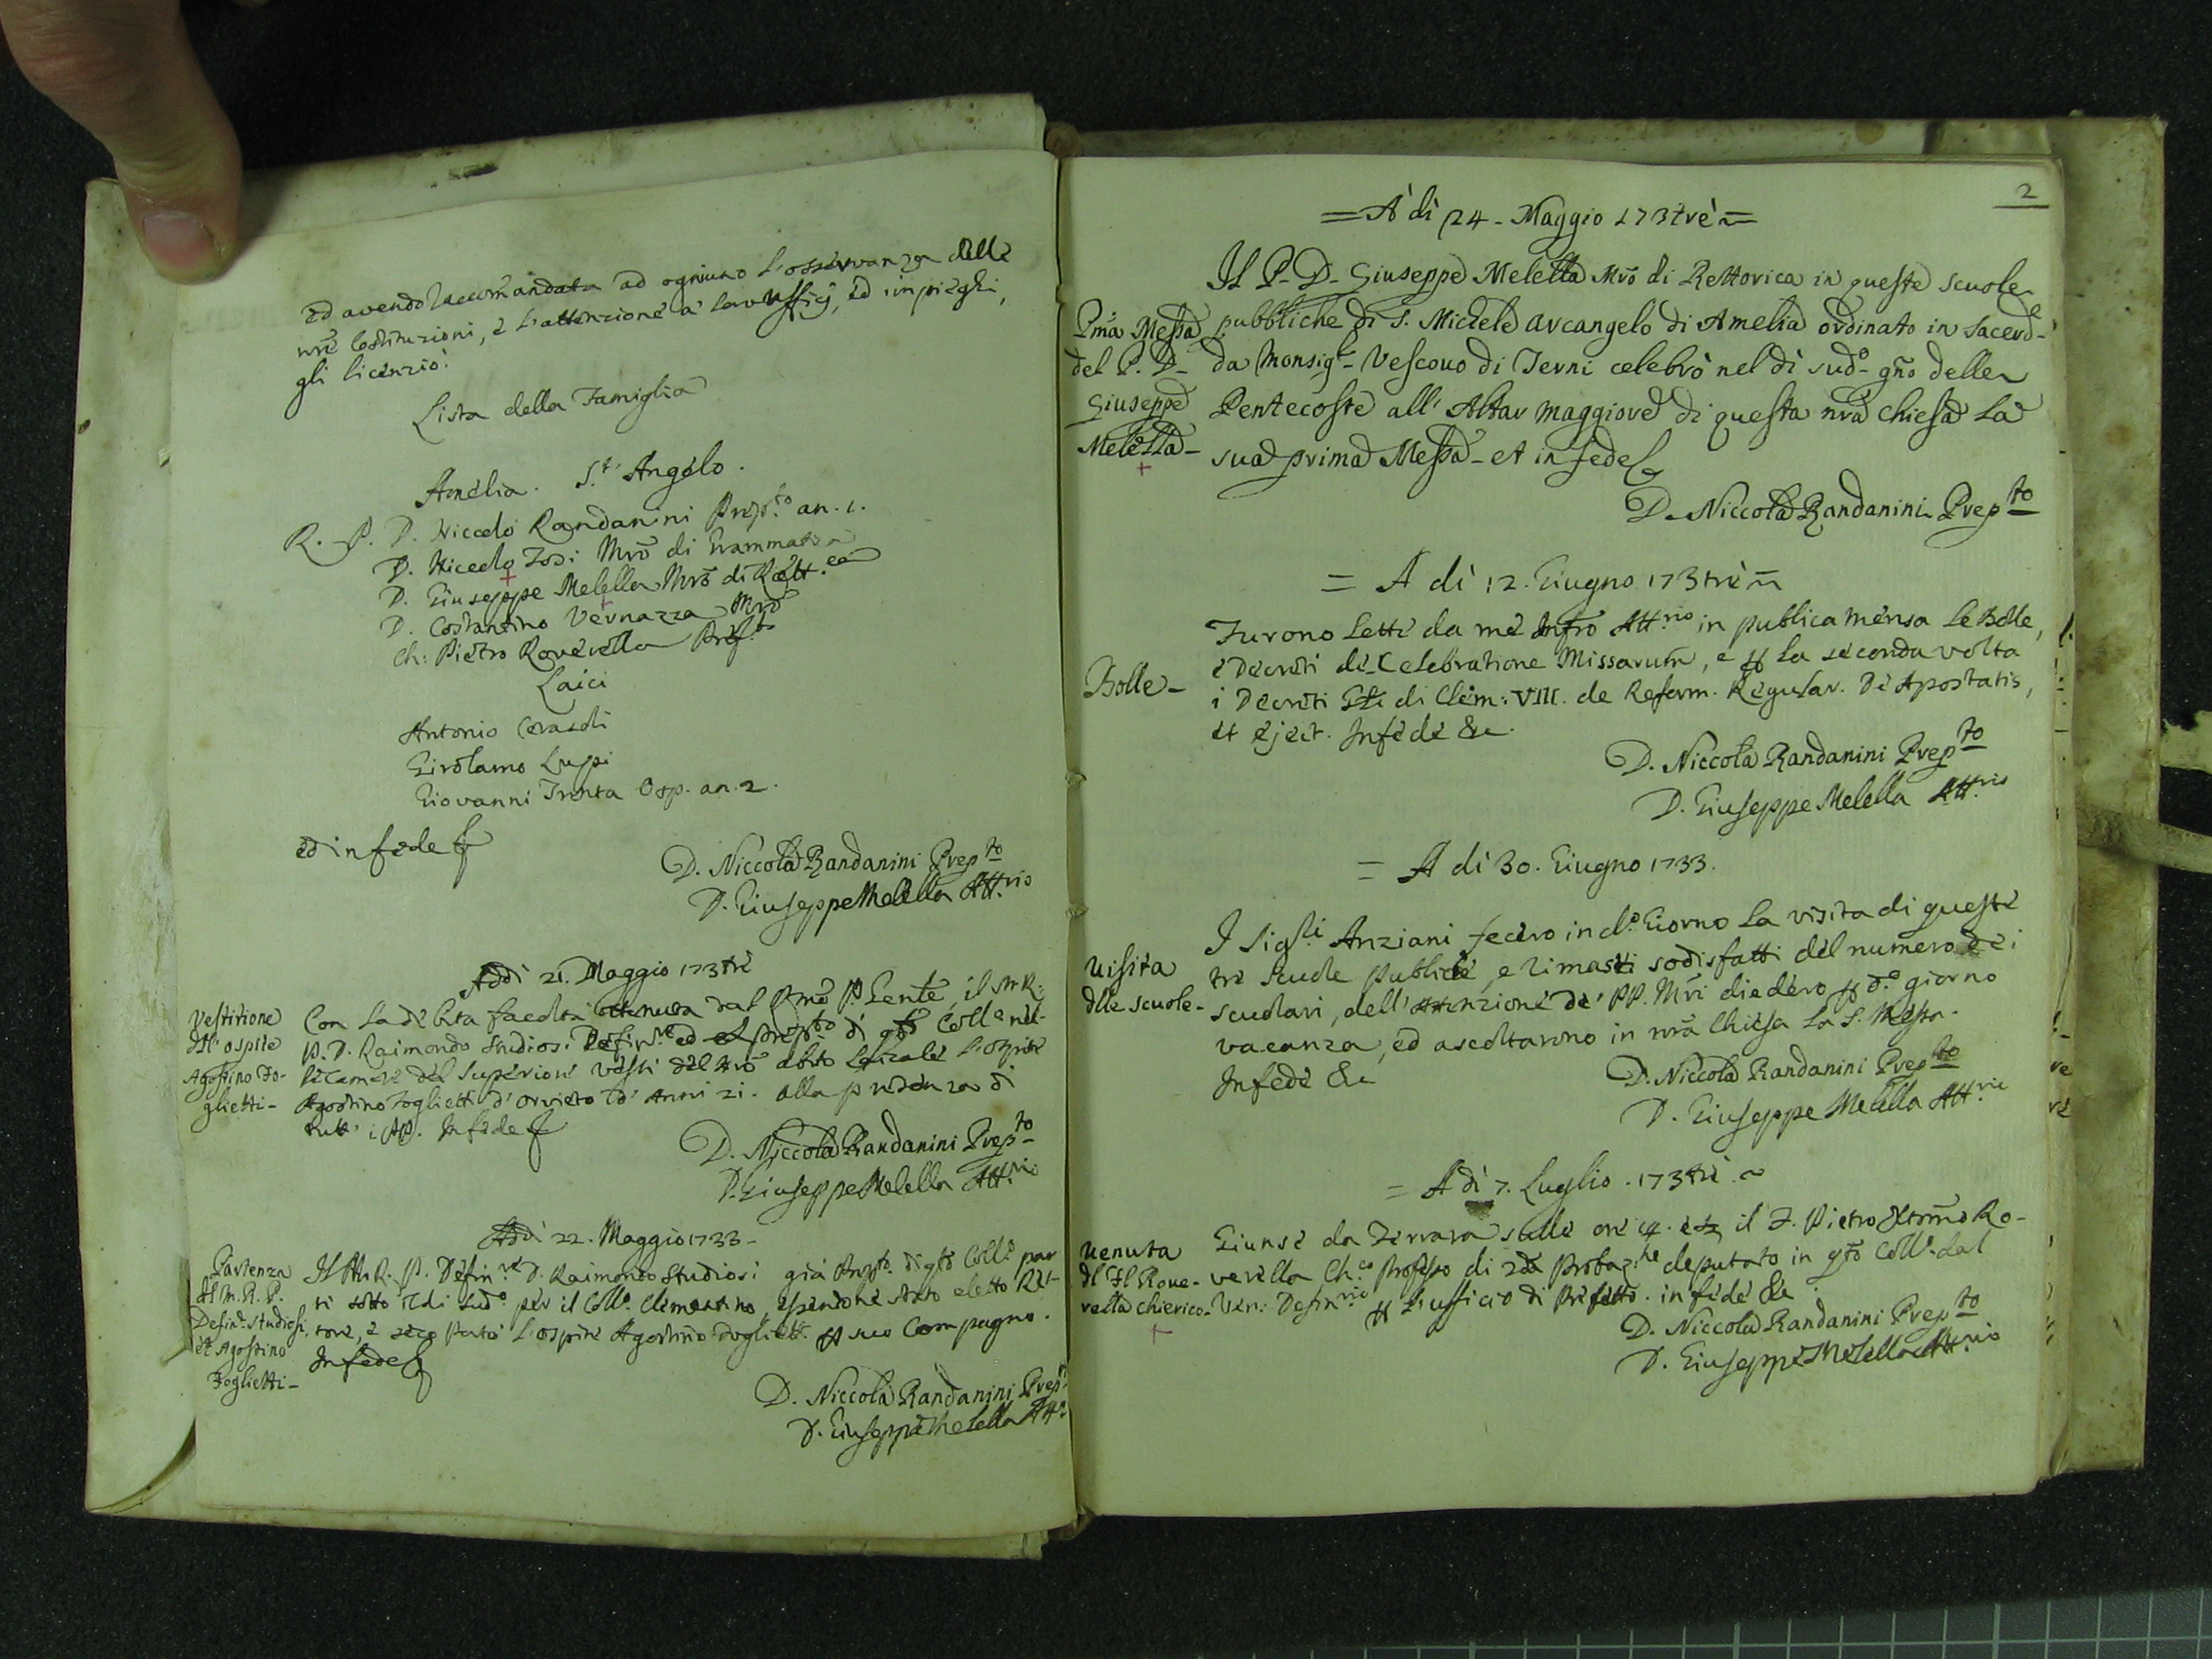 ed avendo raccom̃andata ad ogniuno l'osservanza delle
nrẽ Costituzioni, e l'attenzione a' loro uffici, ed impieghi,
gli licenziò.
Lista della Famiglia
Amelia. S.t' Angelo.
R. P. D. Niccolò Randanini Prep.to an. 1.
D. Niccolo Todi Mrõ di Grammatica
D. Giuseppe Melella Mrõ di Rett.ca
D. Costantino Vernazza Mrõ
Ch: Pietro Roverella Pref.to
Laici
Antonio
Girolamo Lupi
Giovanni Trenta Osp. an. 2.
ed in fede &
D. Niccola Randanini Prep.to
D. Giuseppe Melella Att.rio
Addì 21. Maggio 173tre
Vestitione
dell'ospite
Agostino Fo-
glietti-
Con la debita facoltà ottenuta dal Rmõ P. Gen̄te, il M. R.
P. D. Raimondo Studiosi Defin.re ed Prep.to di q̄to Coll.o nel-
le camere del superiore vestì del nrõ abito Laicale l'ospite
Agostino Foglietti d'Orvieto d'Anni 21. alla presenza di
tutt' i PP. In fede &
D. Niccola Randanini Prep.to
D. Giuseppe Melella Att.rio
Addì 22. Maggio 1733-
Partenza
del M. R. P.
Defin.e Studiosi,
et Agostino
Foglietti-
Il M. R. P. Defin.re D. Raimondo Studiosi già Prep.to di q̄to Coll.o par
tì sotto il dì sud.o per il Coll.o Clementino, essendone stato eletto Ret-
tore, e seco portò l'ospite Agostino Foglietti p suo Compagno.
In fede &
D. Niccola Randanini Prep.to
D. Giuseppe Melella Att.o
2
= A dì 24 - Maggio 173tre =
Pm̃a Messa
del P. D.
Giuseppe
Melella-
Il P. D. Giuseppe Melella Mrõ di Rettorica in queste scuole
pubbliche di S. Michele Arcangelo di Amelia ordinato in Sacerd-
da Monsig.r Vescovo di Terni celebrò nel dì sud.o gñō delle
Pentecoste all' Altar maggiore di questa nrã chiesa la
sua prima Messa - et in fede &
D. Niccola Randanini Prep.to
= A dì 12. Giugno 173tre =
Bolle-
Furono lette da me Infrõ Att.rio in publica mensa le Bolle,
e Decreti de Celebratione Missarum̄, e p la seconda volta
i Decreti di Clem: VIII. de Reform. Regular. De Apostatis,
et eject. In fede &c.
D. Niccola Randanini Prep.to
D. Giuseppe Melella Att.rio
= A dì 30. Giugno 1733.
Visita
dlle scuole-
I Sig.ri Anziani fecero in d.o Giorno la visita di queste
tre scuole publiche, e rimasti sodisfatti del numero dei
scuolari, dell' attenzione de' PP. Mrĩ diedero p d.o giorno
vacanza, ed ascoltarono in nrã Chiesa la S. Messa.
In fede &c
D. Niccola Randanini Prep.to
D. Giuseppe Melella Att.rio
= A dì 7. Luglio. 173tre. ~
Venuta
dl Fl Rove-
rella chierico-
Giunse da Ferrara sulle ore il F. Pietro Ro-
verella Ch.co Professo di 2da Probaz.ne deputato in q̄to Coll.o dal
Ven: Defin.rio p l'ufficio di Prefetto. in fede &c
D. Niccola Randanini Prep.to
D. Giuseppe Melella Att.rio